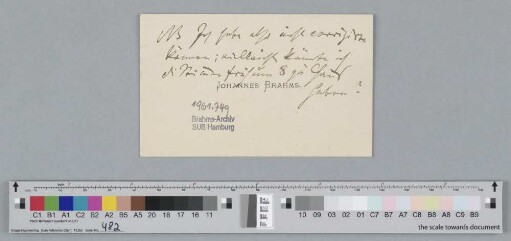 NB Ich habe also nicht corrigiren
können; vielleicht könnte ich
die früh um 8 zu Haus
JOHANNES BRAHMS.
haben?
1961.749
Brahms-Archiv
SUB Hamburg
C1 B1 A1 C2 B2 A2 B5 A5 20 18 17 16 11
10 09 03 02 01 C7 A7 C8 B8 A8 C9 B9
482
the scale towards document